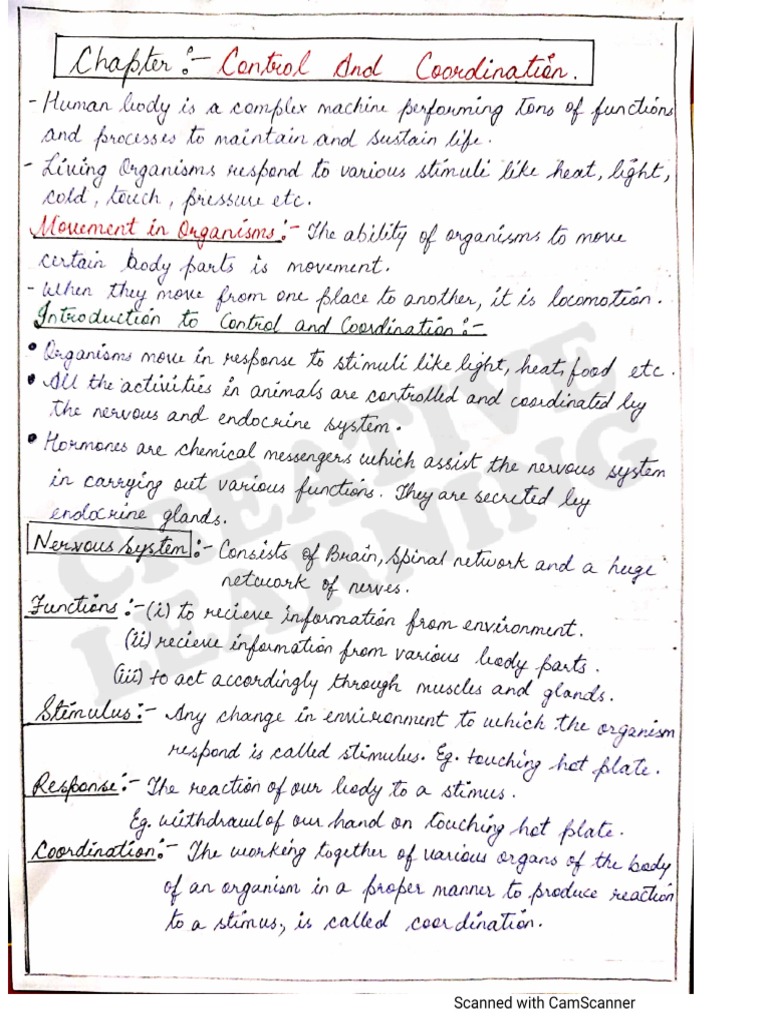 Chapter :- Control And Coordination.
- Human body is a complex machine performing tons of functions
and processes to maintain and sustain life.
- Living Organisms respond to various stimuli like heat, light,
cold, touch, pressure etc.
Movement in Organisms :- The ability of organisms to move
certain body parts is movement.
- When they move from one place to another, it is locomotion.
Introduction to Control and Coordination :-
• Organisms move in response to stimuli like light, heat, food etc.
• All the activities in animals are controlled and coordinated by
the nervous and endocrine system.
• Hormones are chemical messengers which assist the nervous system
in carrying out various functions. They are secreted by
endocrine glands.
Nervous System :- Consists of Brain, spinal network and a huge
network of nerves.
Functions :- (i) to recieve information from environment.
(ii) recieve information from various body parts.
(iii) to act accordingly through muscles and glands.
Stimulus :- Any change in environment to which the organism
respond is called stimulus. Eg. touching hot plate.
Response :- The reaction of our body to a stimus.
Eg. withdrawl of our hand on touching hot plate.
Coordination :- The working together of various organs of the body
of an organism in a proper manner to produce reaction
to a stimus, is called coordination.
CREATIVE
LEARNING
Scanned with CamScanner